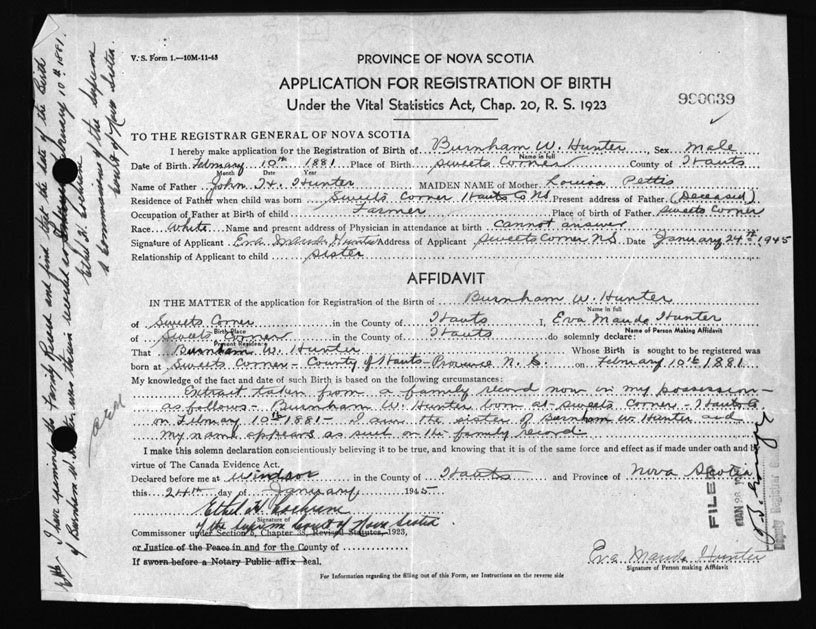 V. S. Form 1.—10M-11-43
PROVINCE OF NOVA SCOTIA
APPLICATION FOR REGISTRATION OF BIRTH
Under the Vital Statistics Act, Chap. 20, R. S. 1923
990039
TO THE REGISTRAR GENERAL OF NOVA SCOTIA
I hereby make application for the Registration of Birth of Burnham W. Hunter, Sex Male
Name in full
Date of Birth February 10th 1881 Place of Birth Sweets Corner County of Hants
Month Date Year
Name of Father John H. Hunter MAIDEN NAME of Mother Louisa Pettis
Residence of Father when child was born Sweets Corner Hants Co NS Present address of Father (Deceased)
Occupation of Father at Birth of child Farmer Place of birth of Father Sweets Corner
Race White Name and present address of Physician in attendance at birth cannot answer
Signature of Applicant Eva Maude Hunter Address of Applicant Sweets Corner N.S. Date January 24th 1945
Relationship of Applicant to child sister
AFFIDAVIT
IN THE MATTER of the application for Registration of the Birth of Burnham W. Hunter
Name in full
of Sweets Corner in the County of Hants I, Eva Maude Hunter
Birth Place Name of Person Making Affidavit
of Sweets Corner in the County of Hants do solemnly declare:
Present Residence
That Burnham W. Hunter Whose Birth is sought to be registered was
born at Sweets Corner - County of Hants - Province N. S. on February 10th 1881
My knowledge of the fact and date of such Birth is based on the following circumstances:
Extract taken from a family record now in my possession -
as follows - Burnham W. Hunter born at Sweets Corner - Hants Co
on February 10th 1881 - I am the sister of Burnham W. Hunter and
my name appears as such on the family record.
I make this solemn declaration conscientiously believing it to be true, and knowing that it is of the same force and effect as if made under oath and by
virtue of The Canada Evidence Act.
Declared before me at Windsor in the County of Hants and Province of Nova Scotia
this 24th day of January 1945
Ethel H. Cochrane
Signature of
of the Supreme Court of Nova Scotia.
Commissioner under Section 5, Chapter 38, Revised Statutes, 1923,
or Justice of the Peace in and for the County of
If sworn before a Notary Public affix seal.
Eva Maude Hunter
Signature of Person making Affidavit
For Information regarding the filling out of this Form, see Instructions on the reverse side
FILED
JAN 26
Deputy Registrar
I have examined the family record and find that the date of the Birth
of Burnham W. Hunter was therein recorded as February 10th 1881.
Ethel H. Cochrane
A Commissioner of the Supreme
Court of Nova Scotia.